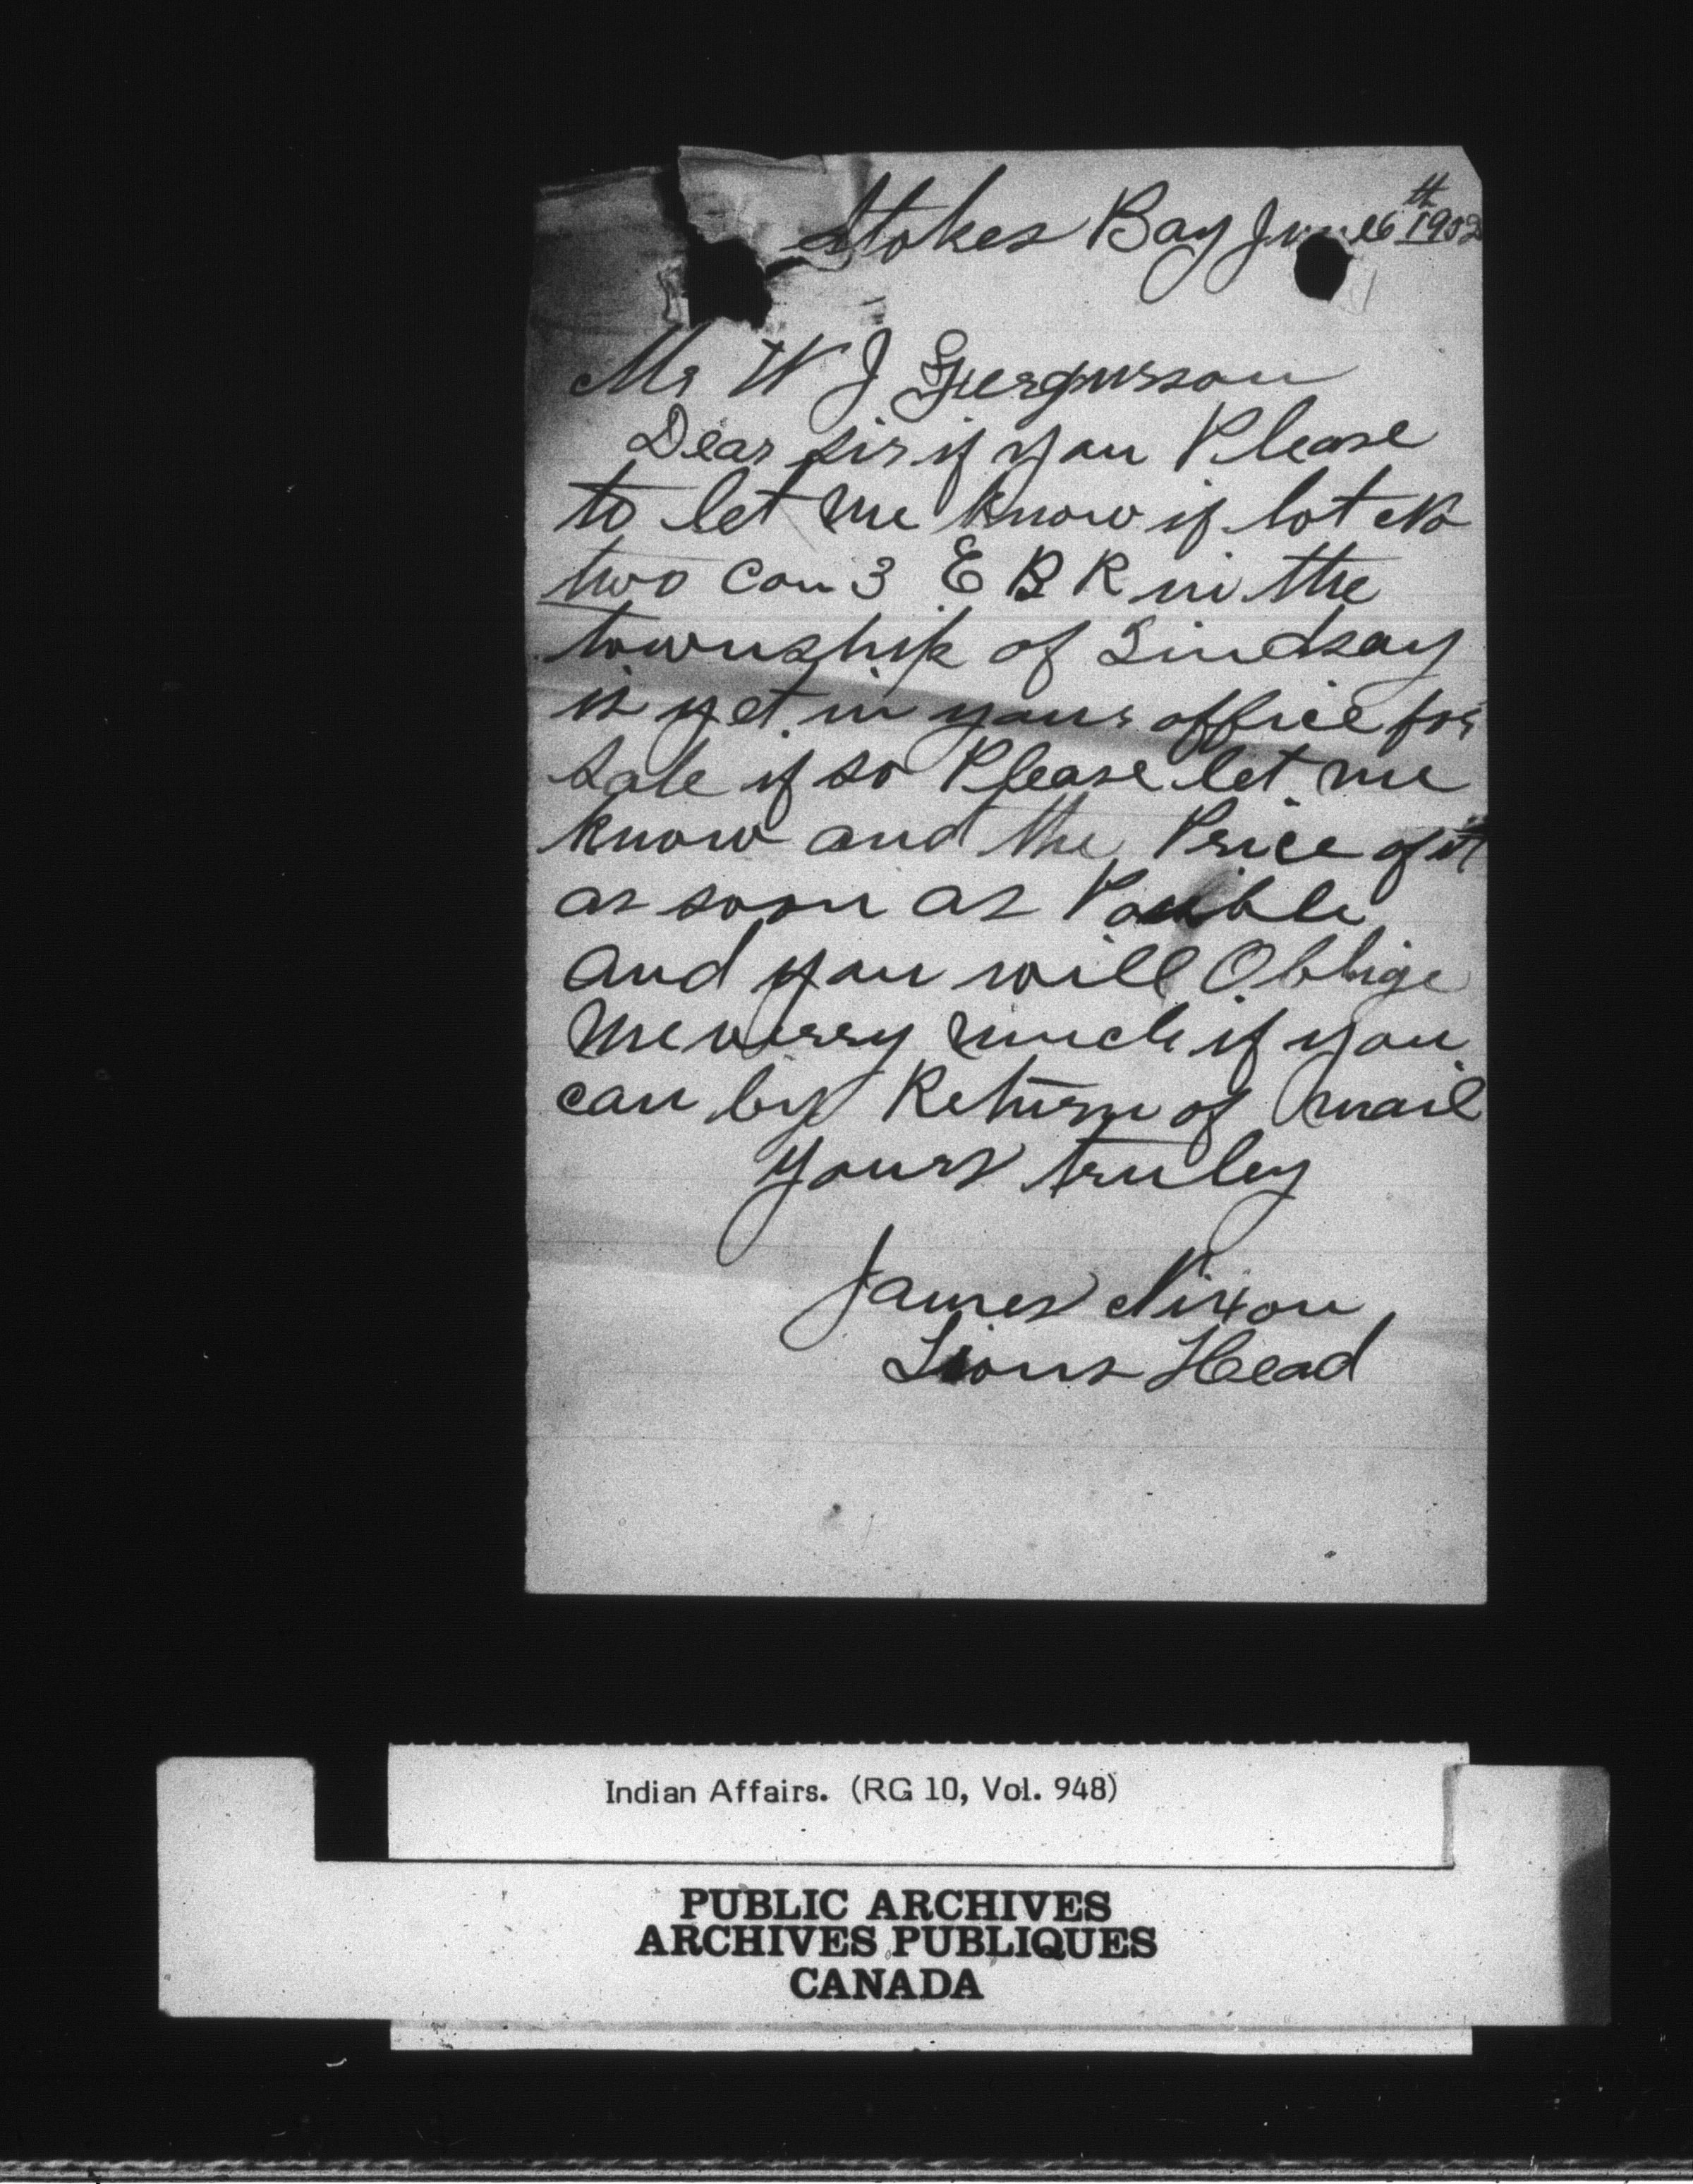 Stokes Bay June 6th 1902
Mr W J Fergursson
Dear sir if you Please
to let me know if lot No
two con 3 E B R in the
township of Lindsay
is yet in your office for
sale if so Please let me
know and the Price of it
as soon as Possible
and you will Oblige
me verry much if you
can by Return of mail
yours truley
James Nixon
Lions Head
Indian Affairs. (RG 10, Vol. 948)
PUBLIC ARCHIVES
ARCHIVES PUBLIQUES
CANADA